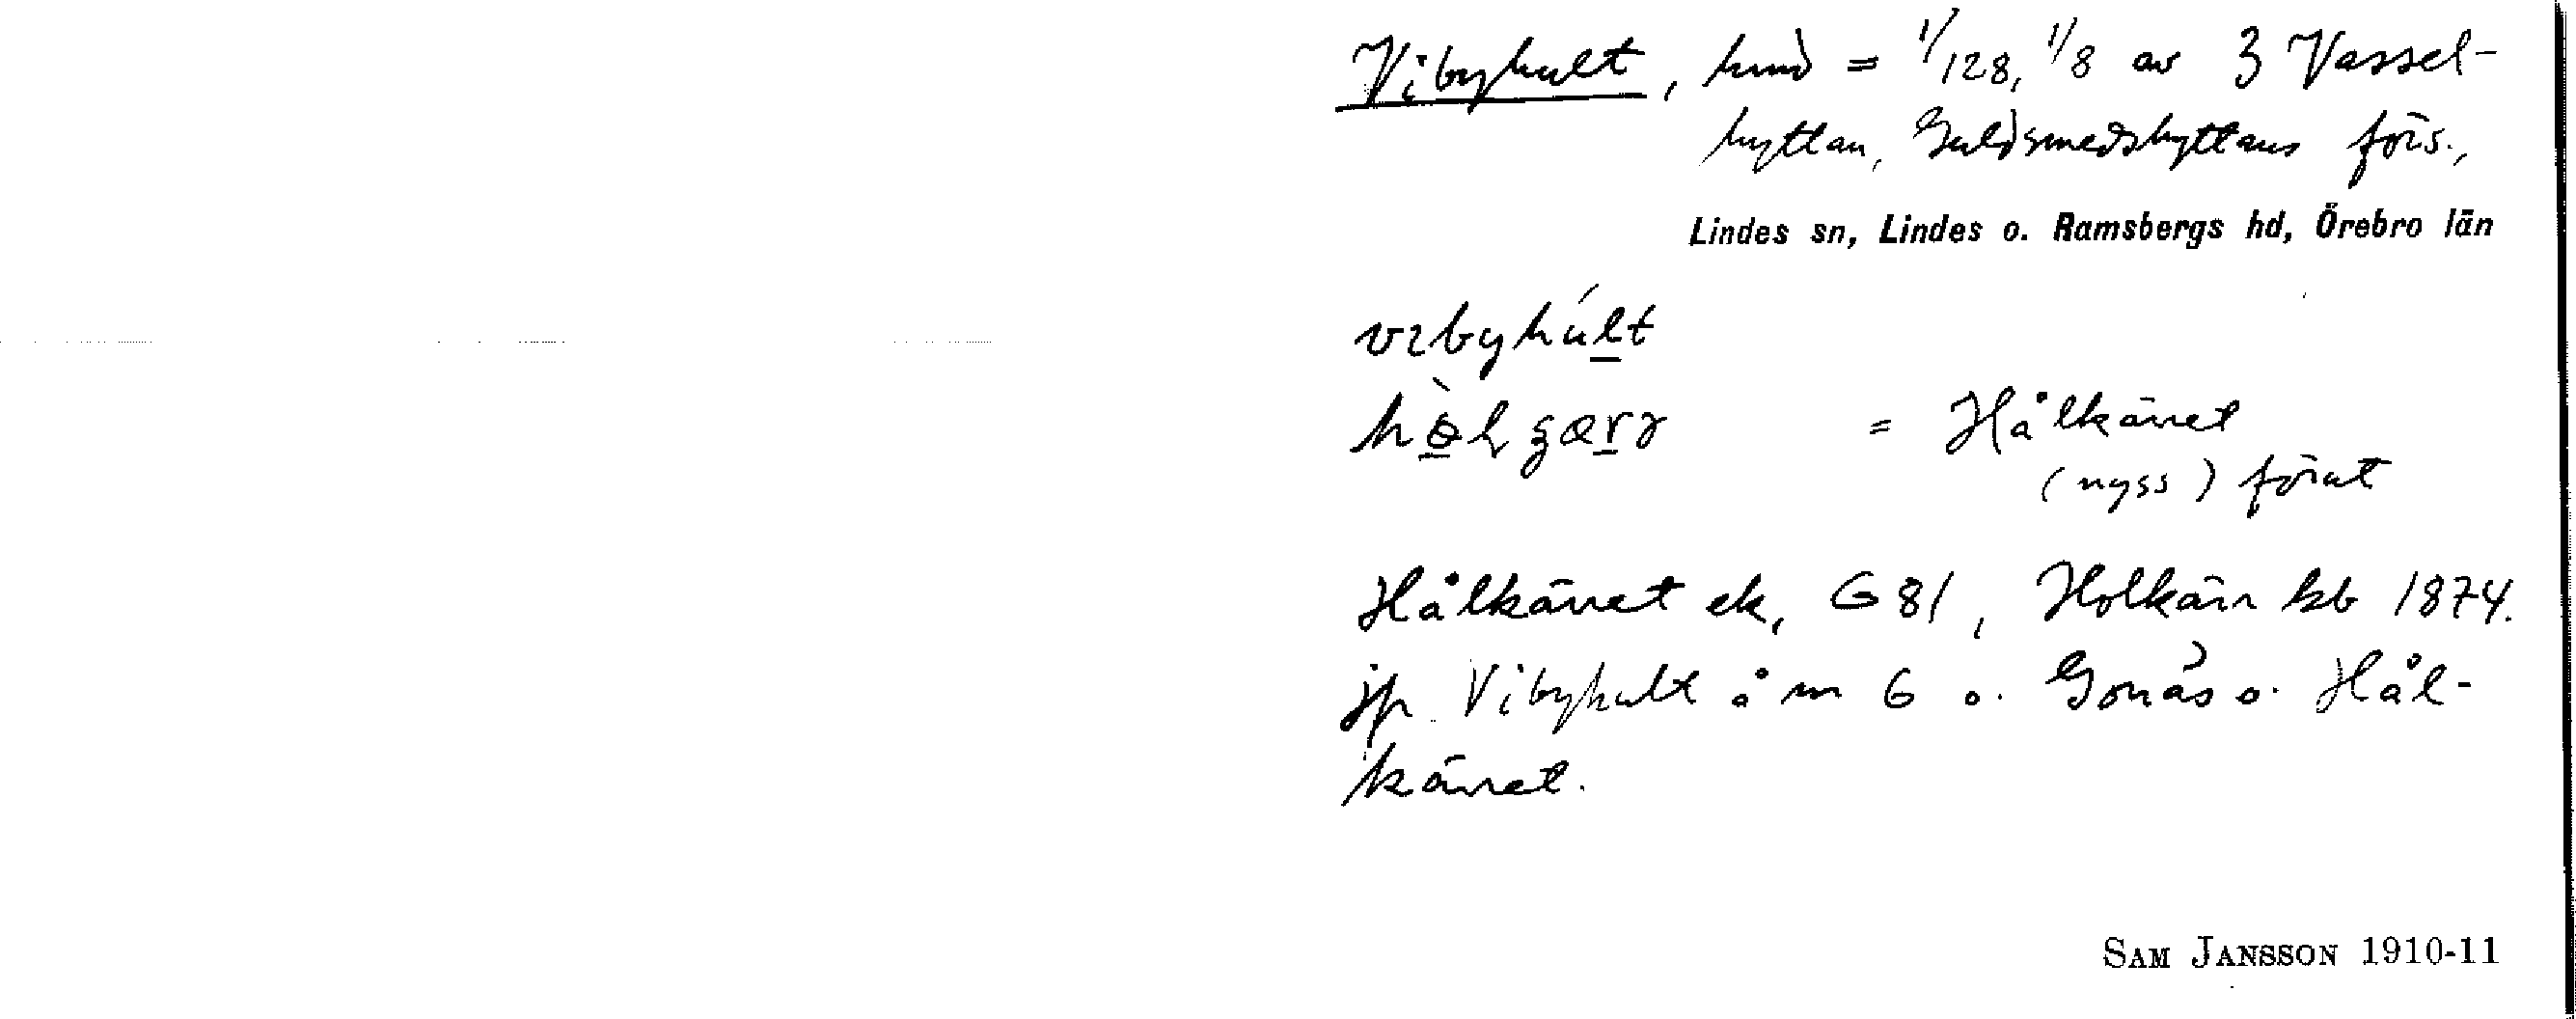 Vibyhult, hmd = 1/128, 1/8 av 3 Vassel-
hyttan, Guldsmedshyttans förs.,
Lindes sn, Lindes o. Ramsbergs hd, Örebro län
vɩbyhúlt
= Hålkärret
(nyss) förut
Hålkärret ek, G 81, Holkärr kb 1874.
jfr Vibyhult å m 6 o. Gonås o. Hål-
kärret.
SAM JANSSON 1910-11